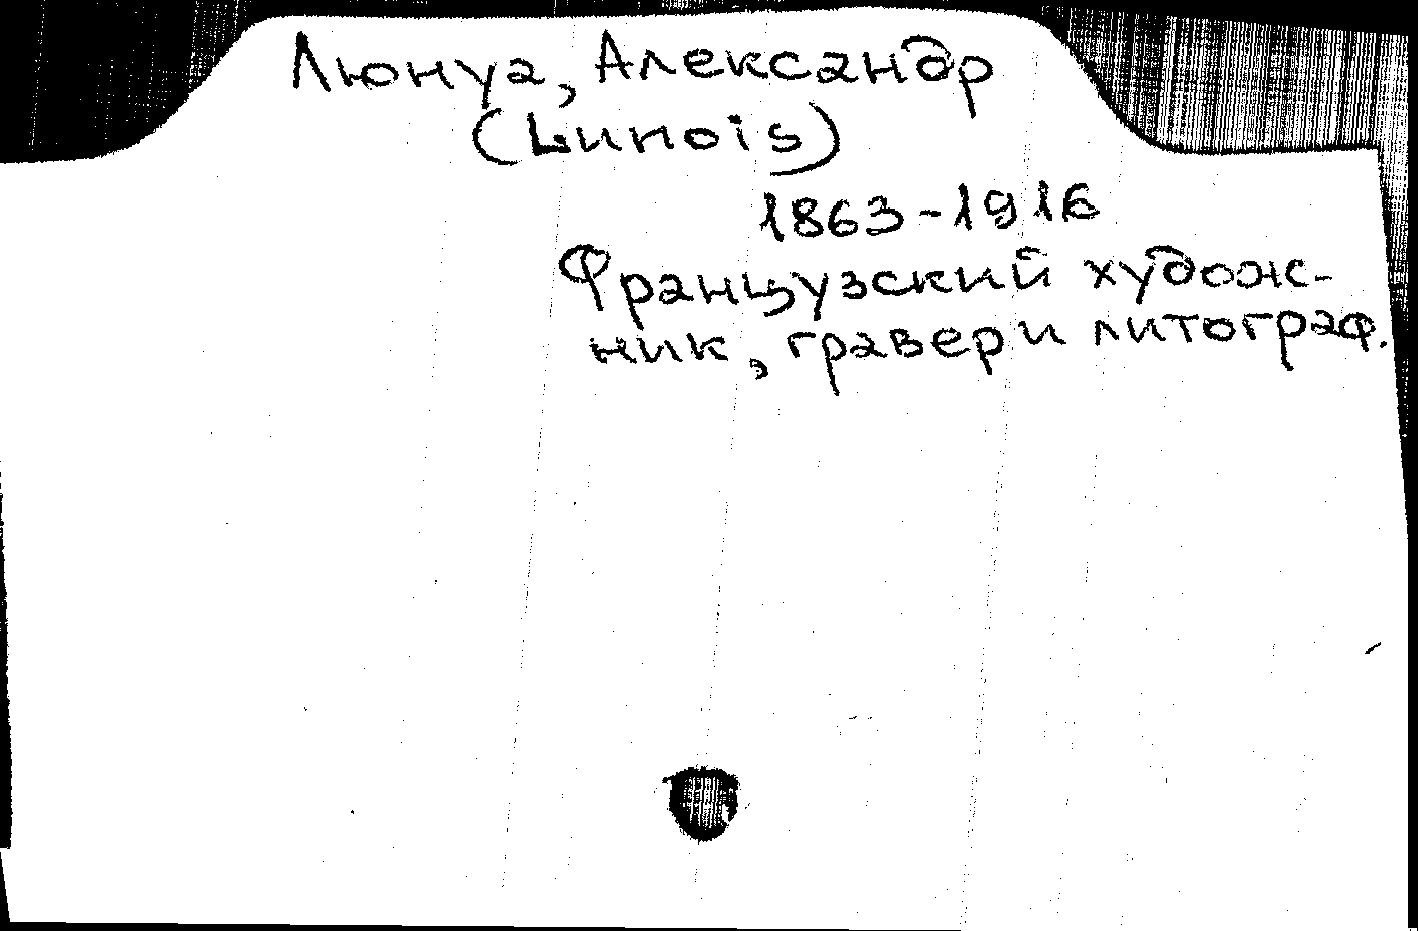 Люнуа, Александр
(Lunois)
1863-1916
Французский худож-
ник, гравер и литограф.